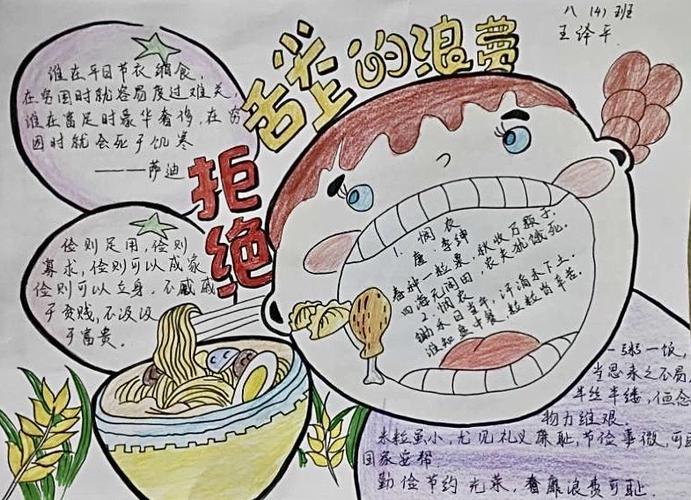 八(4)班
王泽平
拒绝舌尖上的浪费
谁在平日节衣缩食，
在穷困时就容易度过难关，
谁在富足时豪华奢侈，在穷
困时就会死于饥寒
——萨迪
俭则足用，俭则
寡求，俭则可以成家
俭则可以立身。不戚戚
于贫贱，不汲汲
于富贵。
1. 悯农
唐·李绅
春种一粒粟，秋收万颗子。
四海无闲田，农夫犹饿死。
2. 悯农
锄禾日当午，汗滴禾下土。
谁知盘中餐，粒粒皆辛苦。
一粥一饭，
当思来之不易，
半丝半缕，恒念
物力维艰。
米粒虽小，尤见礼义廉耻，节俭事微，可
国家安帮
勤俭节约光荣，奢靡浪费可耻